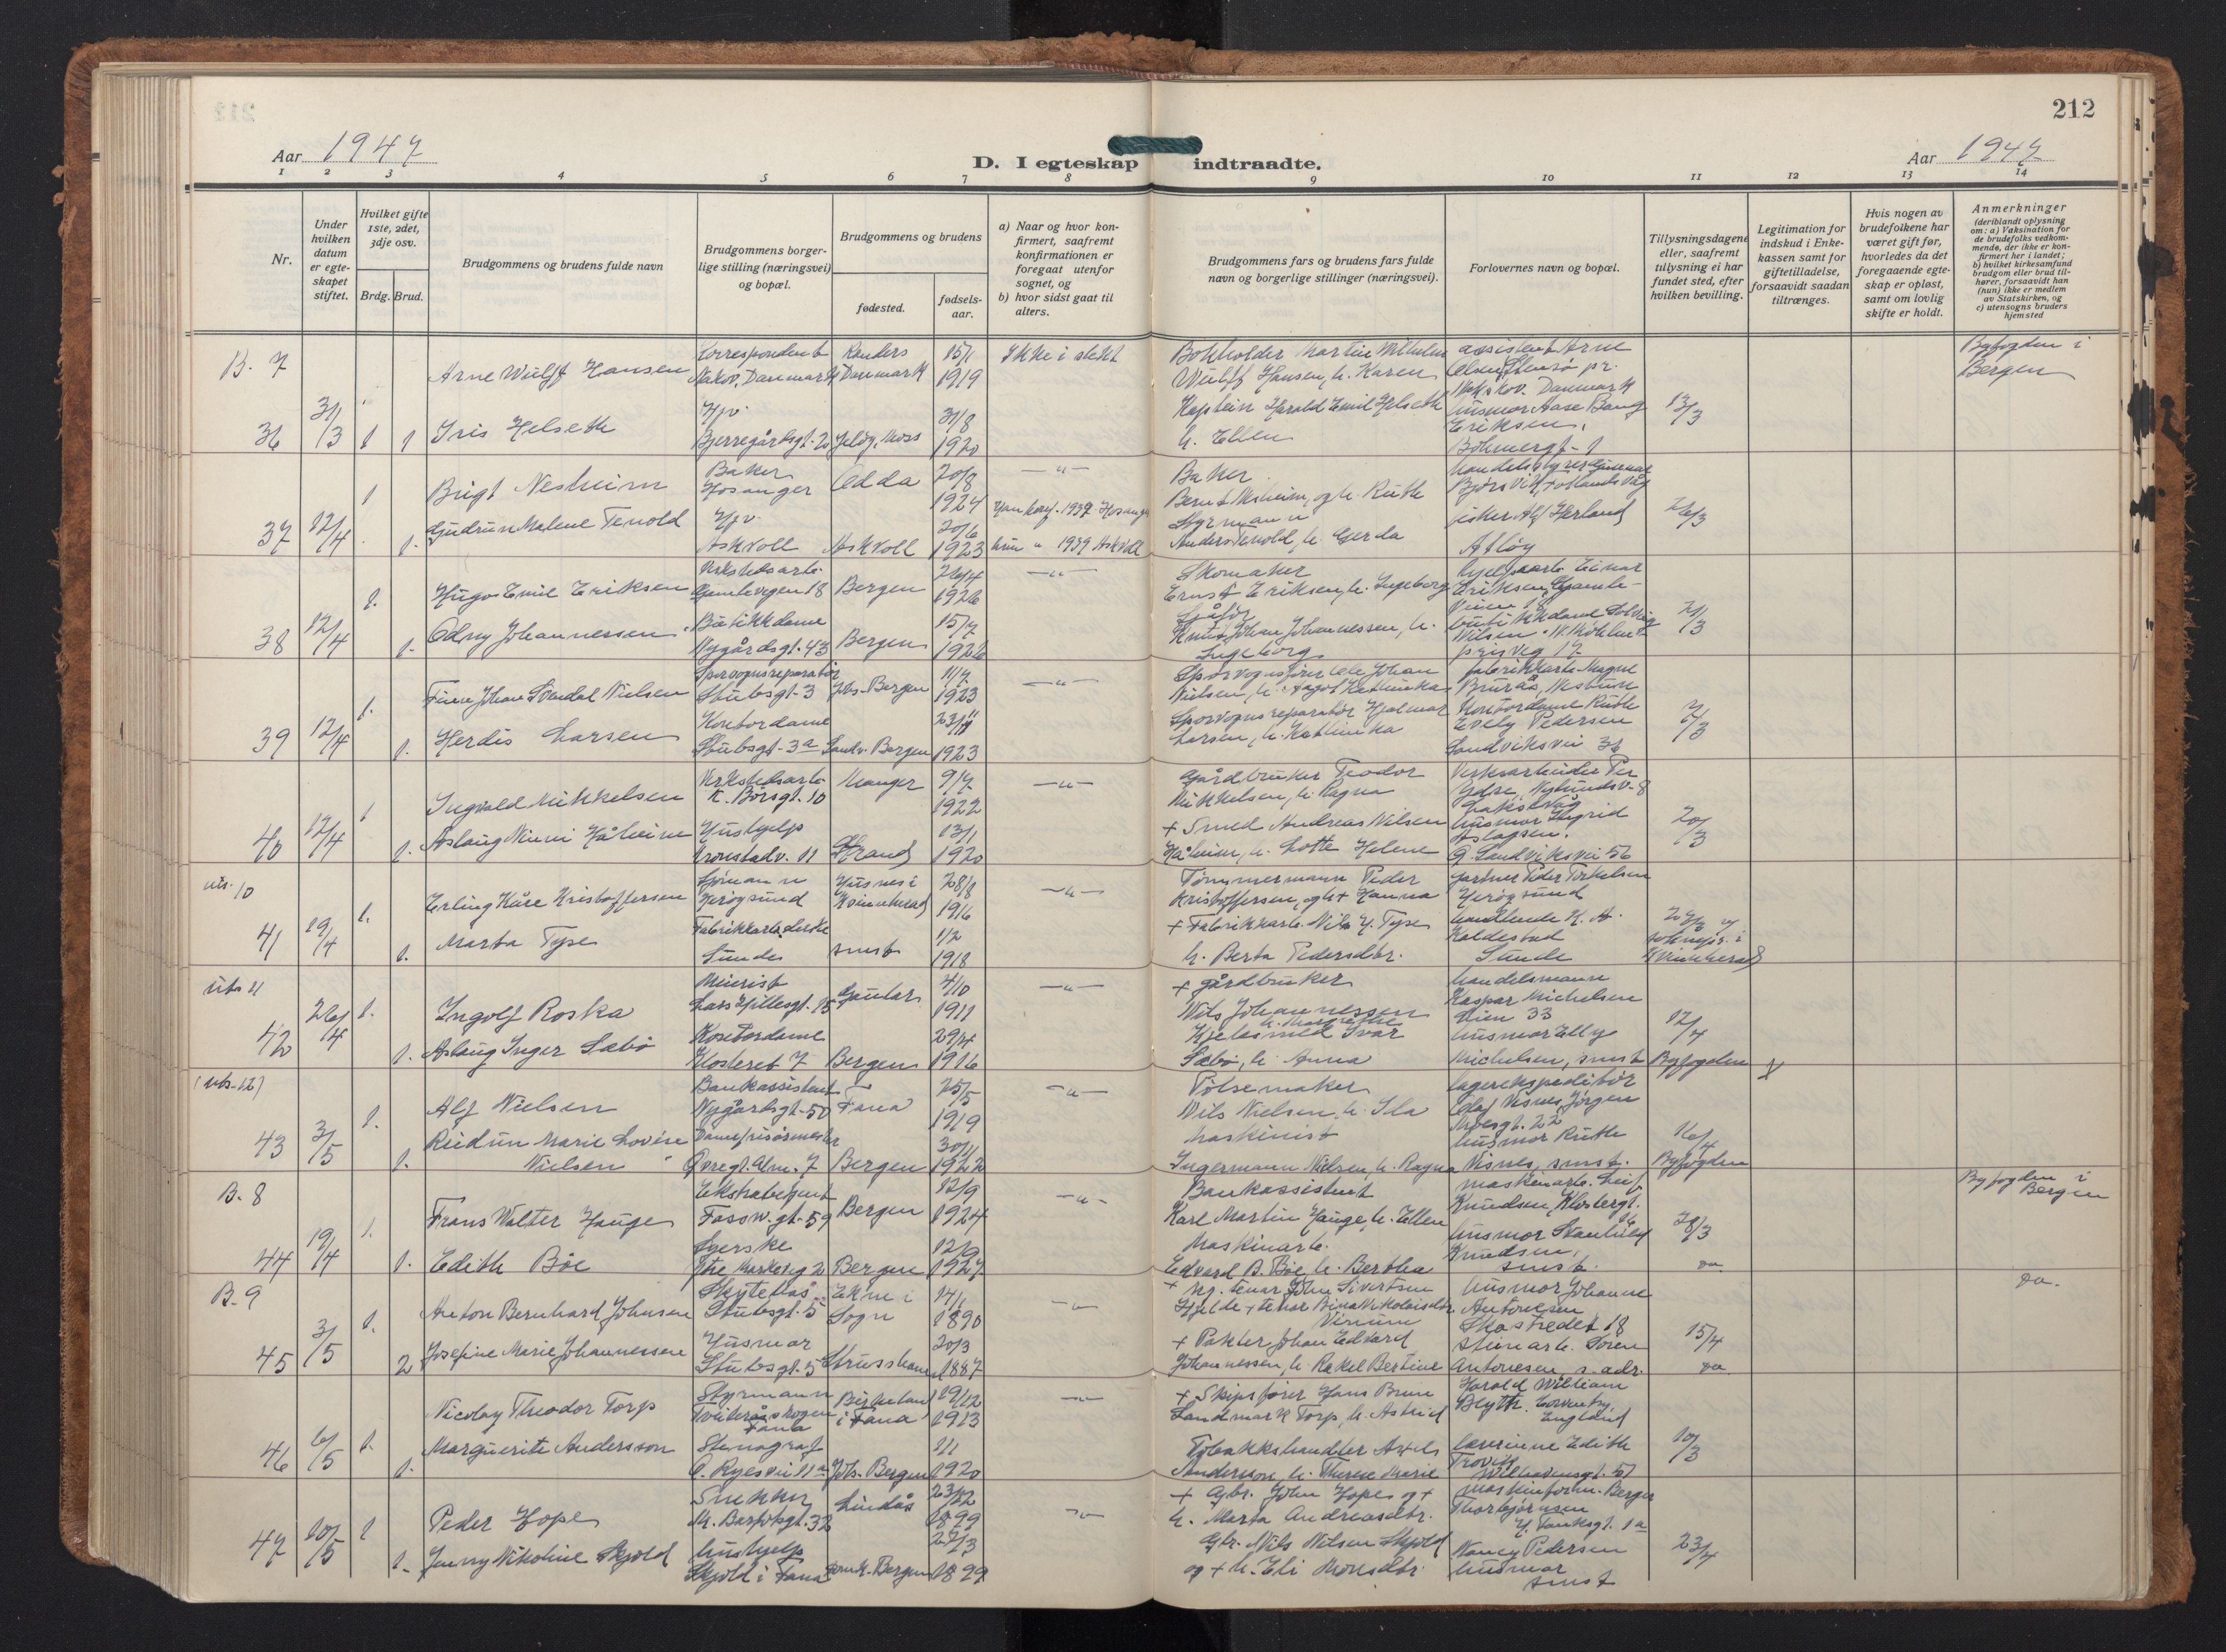 212
Aar 1947
D. I egteskap indtraadte.
Aar 1947
1 2 3 4 5 6 7 8 9 10 11 12 13 14
Nr.
Under hvilken datum er egteskapet stiftet.
Hvilket gifte 1ste, 2det, 3dje osv.
Brdg. Brud.
Brudgommens og brudens fulde navn
Brudgommens borgerlige stilling (næringsvei) og bopæl.
Brudgommens og brudens
fødested.
fødselsaar.
a) Naar og hvor konfirmert, saafremt konfirmationen er foregaat utenfor sognet, og
b) hvor sidst gaat til alters.
Brudgommens fars og brudens fars fulde navn og borgerlige stillinger (næringsvei).
Forlovernes navn og bopæl.
Tillysningsdagene eller, saafremt tillysning ei har fundet sted, efter hvilken bevilling.
Legitimation for indskud i Enkekassen samt for giftetilladelse, forsaavidt saadan tiltrænges.
Hvis nogen av brudefolkene har været gift før, hvorledes da det foregaaende egteskap er opløst, samt om lovlig skifte er holdt.
Anmerkninger
(deriblandt oplysning om: a) Vaksination for de brudefolks vedkommende, der ikke er konfirmert her i landet;
b) hvilket kirkesamfund brudgom eller brud tilhører, forsaavidt han (hun) ikke er medlem av Statskirken, og
c) utensogns bruders hjemsted
B. 7
Arne Wulff Hansen
Korrespondent Nakov. Danmark
Randers Danmark
15/1 1919
Ikke i slekt
Bokholder Martin Wilhelm Wulff Hansen, h. Karen
assistent Arne Olsen
Nakskov. Danmark
Byfogden i Bergen
36 31/3 1 1
Iris Helseth
Hjv. Bjerregårdsgt. 20
Jeløy. Moss
31/8 1920
Kaptein Harald Emil Helseth h. Ellen
husmor Aase Bang Eriksen,
Bøhmergt. 1
13/3
1
Brigt Nesheim
Baker Hosanger
Odda
20/8 1924
Baker Bernt Nesheim, og h. Ruth
37 12/4 1.
Gudrun Malene Tenold
Hjv. Askvoll
Askvoll
20/6 1923
hun " 1939 Askvoll
Styrmann Anders Tenold, h. Gerda
fisker Alf Herland
Atløy
26/3
1.
Hugo Emil Eriksen
Verkstedsarb. Gamlevegen 18
Bergen
26/4 1926
Skomaker Ernst Eriksen, h. Ingeborg
hjelpearb. Einar Eriksen, Gamleveien 18
38 12/4 1.
Odny Johannessen
Butikkdame Nygårdsgt. 43
Bergen
15/7 1926
Sjåfør Knut Johan Johannessen, h. Ingeborg
butikkdame Solveig Nilsen
21/3
1.
Finn Johan Svendal Nielsen
Sporvognsreparatør Stubsgt. 3
Joh. Bergen
11/7 1923
Sporvognsfører Ole Johan Nielsen, h. Aagot Kathinka
fabrikkarb. Magne Brurås, Nestun
39 12/4 1.
Herdis Larsen
Kontordame Stubsgt. 3a
Sandv. Bergen
23/11 1923
Sporvognsreparatør Hjalmar Larsen, h. Kathinka
Kontordame Ruth Evely Pedersen
Sandviksvei 36
21/3
1
Ingvald Mikkelsen
Verkstedsarb. K. Børsgt. 10
Manger
9/7 1922
Gårdbruker Teodor Mikkelsen, h. Ragna
Verksarbeider Per
Laksevåg
40 12/4 1.
Aslaug Minni Håheim
Hushjelp Kronstadv. 11
Strand
13/1 1920
+ Smed Andreas Nilsen Håheim, h. Lotte Helene
husmor Sigrid Aslagsen.
Ø. Sandviksvei 56
20/3
uts. 10
1.
Erling Kåre Kristoffersen
Sjømann Herøysund
Husnes i Kvinnherad
28/8 1916
Tømmermann Peder Kristoffersen, og h + Hanna
gartner Peder Torkelsen Herøysund
41 19/4 1.
Marta Type
Sunde
smst
1/2 1918
+ Fabrikkarb. Nils H. Type h. Berta Pedersdtr.
handlende K. A. Kaldestad
Sunde
uts 11
1.
Ingolf Roska
Murerist Lars Hillesgt. 15
Gaular
4/10 1911
+ gårdbruker Nils Johannessen h. Margrethe
handelsmann Kaspar Michelsen Øien 33
42 26/4 1.
Aslaug Inger Sæbø
Kontordame Klosteret 7
Bergen
29/4 1916
Kjelesmed Ivar Sæbø, h. Anna
husmor Elly Michelsen, smst
12/4 Byfogden
(uts. 12)
1.
Alf Nielsen
Bankassistent Nygårdsgt. 50
Fana
25/5 1919
Pølsemaker Nils Nielsen, h. Ida
lagerekspeditør Olaf Visnes, Jørgen Moesgt. 22
43 3/5 1.
Reidun Marie Lovise Nielsen
Damefrisørmester Øvregt. Alm. 7
Bergen
30/11 1922
Maskinist Ingermann Nielsen, h. Ragna
husmor Ruth Visnes, smst.
16/4 Byfogden
B. 8
1.
Frans Walter Hauge
Ekstrabetjent Fossw. gt. 59
Bergen
12/9 1924
Bankassistent Karl Martin Hauge, h. Ellen
maskinarb. Leif Knudsen, Klostergt.
Byfogden i Bergen
44 19/4 1.
Edith Bøe
Syerske Ytre Markevg 2
Bergen
12/9 1927
Maskinarb. Edvard B. Bøe, h. Bertha
husmor Ragnhild Knudsen, smst.
28/3 do.
B. 9
1.
Anton Bernhard Johnsen
Stubsgt. 5
Sogn
14/1 1890
Hjelde
husmor Johanne Antonesen
Skostredet 18
do.
45 3/5 2
Josefine Marie Johannessen
Husmor Stubsgt. 5
Strusshamn
20/3 1887
+ Pakter Johan Edvard Johannessen, h. Rakel Bertine
stuearb. Søren Antonesen, s. adr.
15/4 do
Nicolay Theodor Torp
Styrmann Tveiteråsskogen Fana
Birkeland i Fana
19/12 1913
+ Skipsfører Hans Brun Landmark Torp, h. Astrid
Harold William Blyth, Coventry, England
46 6/5 1. 1.
Marguerite Andersson
Stenograf O. Ryesvei 11a
Joh. Bergen
1/1 1920
Tobakkshandler Axel Andersson, h. Therese Marie
lærerinne Edith
10/3
Peder Hope
Snekker M. Barfotsgt. 32
Lindås
23/12 1899
+ Gbr. John Hope og + h. Marta Andreasdtr.
maskinform. Berger Thorbjørnsen
H. Tanksgt. 1a
47 10/5 1 1.
Jenny Nikoline Skjold
hushjelp Skjold i Fana
Domk. Bergen
27/3 1899
Gbr. Nils Nilsen Skjold og + h. Eli Monsdtr.
Nancy Pedersen husmor smst
23/4